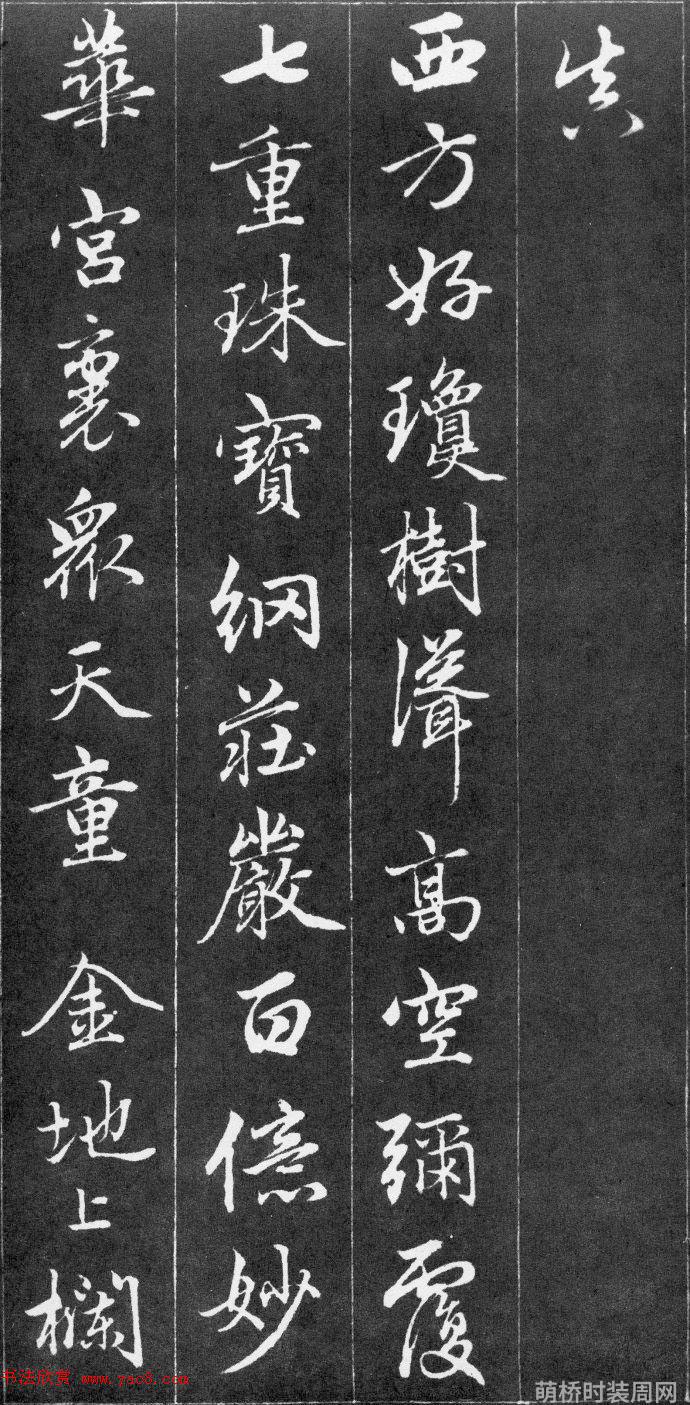 真
西方好瓊樹聳高空彌覆
七重珠寶網莊嚴百億妙
華宮裏眾天童 金地上欄
书法欣赏 www.yac8.com
萌桥时装周网